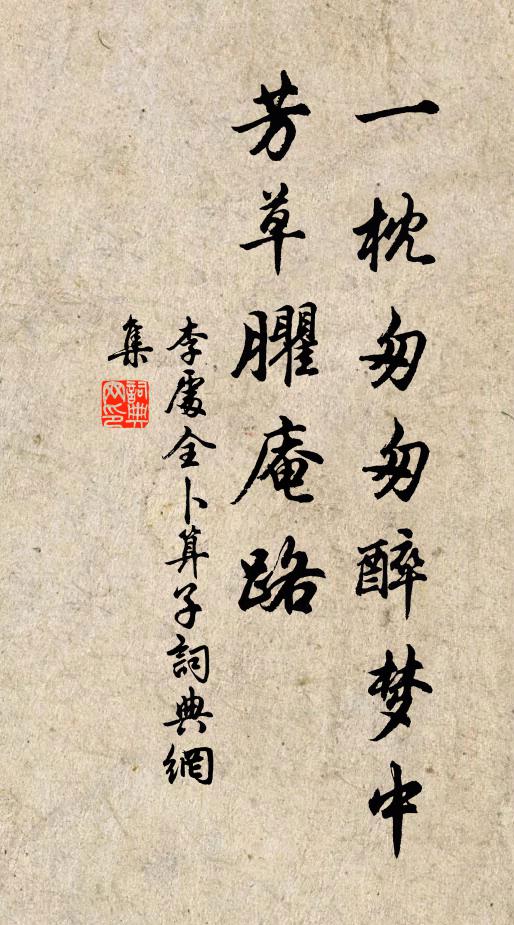 一枕匆匆醉梦中
芳草臞庵路
李處全卜算子詞典網
集
詞典網印